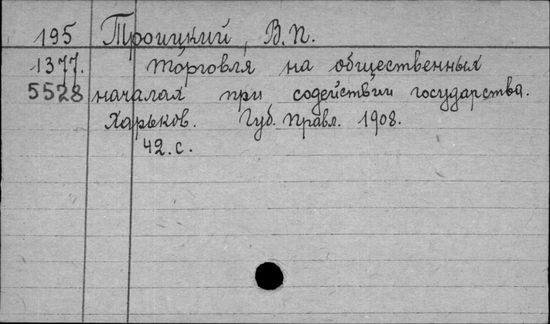 195 Троицкий, В.П.
1377. Торговля на общественных
5528 началах при содействии государства.
Харьков. Губ. Правл. 1908.
42. с.